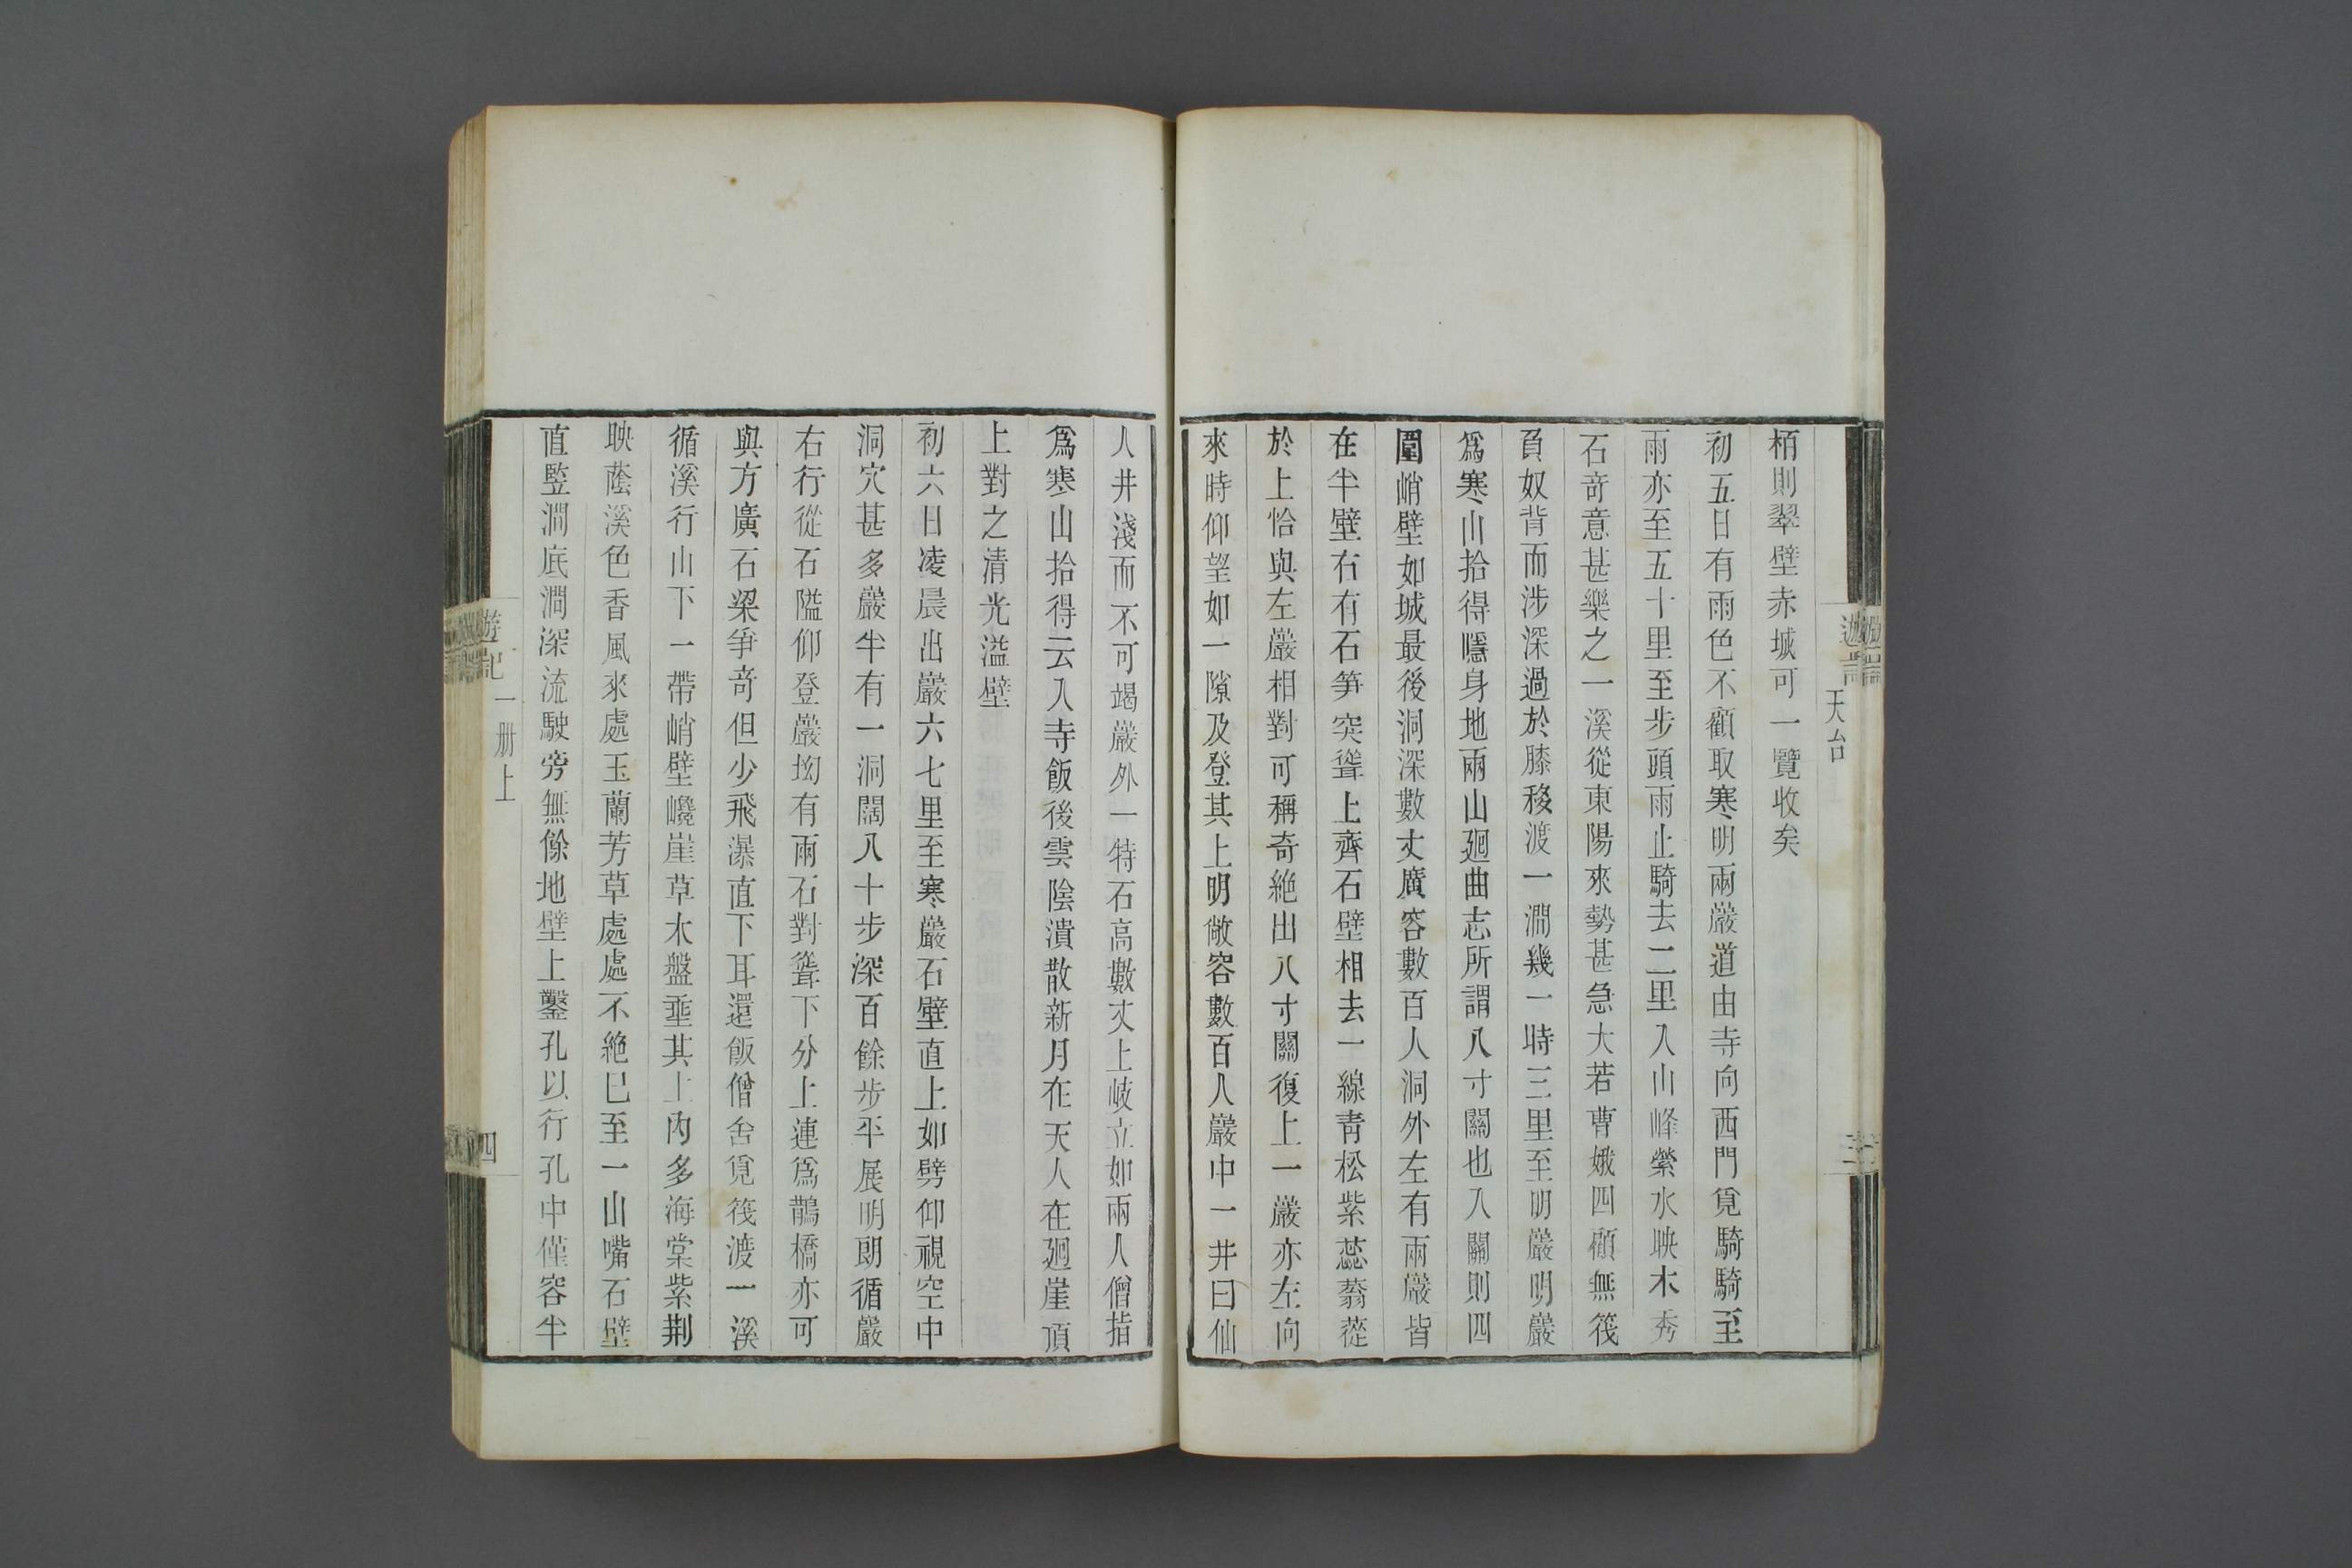 天台
栢則翠壁赤城可一覽收矣
初五日有雨色不顧取寒明兩巖道由寺向西門覓騎騎至
雨亦至五十里至步頭雨止騎去二里入山峰縈水映木秀
石竒意甚樂之一溪從東陽來勢甚急大若曹娥四顧無筏
負奴背而涉深過於膝移渡一澗幾一時三里至明巖明巖
爲寒山拾得隱身地兩山廻曲志所謂八寸關也入關則四
圍峭壁如城最後洞深數丈廣容數百人洞外左有兩巖皆
在半壁右有石笋突聳上齊石壁相去一線青松紫蕊蓊蓯
於上恰與左巖相對可稱奇絶出八寸關復上一巖亦左向
來時仰望如一隙及登其上明敞容數百人巖中一井曰仙
人井淺而不可竭巖外一特石高數丈上岐立如兩人僧指
爲寒山拾得云入寺飯後雲陰潰散新月在天人在廻崖頂
上對之清光溢壁
初六日凌晨出巖六七里至寒巖石壁直上如劈仰視空中
洞穴甚多巖半有一洞闊八十步深百餘步平展明朗循巖
右行從石隘仰登巖坳有兩石對聳下分上連爲鵲橋亦可
與方廣石梁爭竒但少飛瀑直下耳還飯僧舍覓筏渡一溪
循溪行山下一帶峭壁巉崖草木盤垂其上内多海棠紫荆
映蔭溪色香風來處玉蘭芳草處處不絶已至一山嘴石壁
直竪澗底澗深流駛旁無餘地壁上鑿孔以行孔中僅容半
遊記
一册上
四